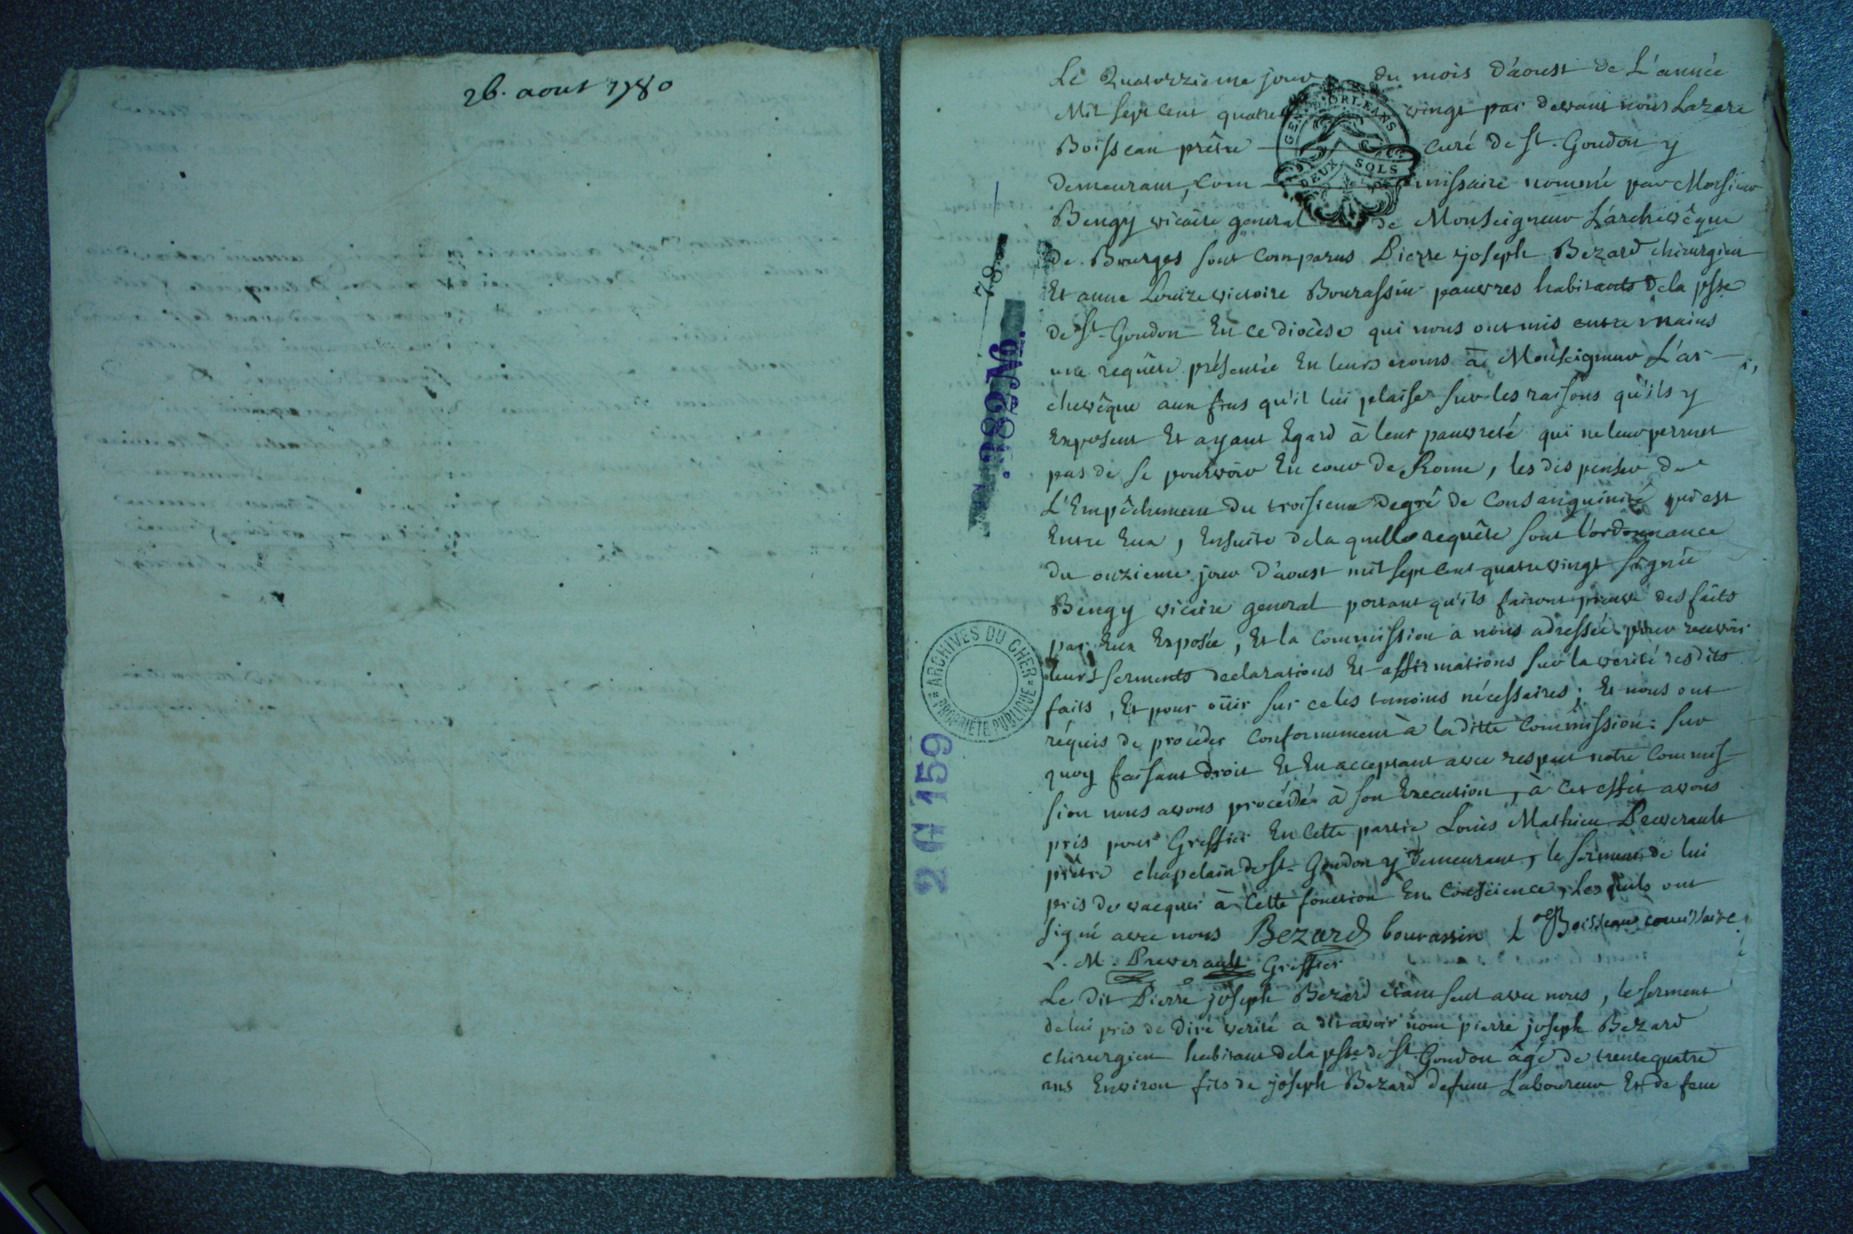 26. aout 1780
Le Quatorzieme jour du mois d'aoust de L'année
Mil sept cent quatre vingt par devant nous Lazare
Boisseau prêtre curé de St. Gondon y
demeurant, com missaire nommé par Monsieur
Bengy vicaire general de Monseigneur L'archevêque
de Bourges sont comparus Pierre joseph Bezard chirurgien
Et anne Louize victoire Bourassin pauvres habitants dela psse
de St. Gondon En ce diocèse qui nous ont mis entre mains
une requête présentée En leurs noms à Monseigneur L'ar-
chevêque aux fins qu'il lui plaise sur les raisons qu'ils y
Exposent Et ayant Egard à leur pauvreté qui ne leur permet
pas de se pourvoir En cour de Rome, les dispenser de
L'Empêchement du troisieme degré de Consanguinité qui est
Entre Eux, Ensuite dela quelle requête sont l'ordonnance
du onzieme jour d'aoust mil sept cent quatre vingt signée
Bengy vicaire general portant qu'ils fairont preuve des faits
par Eux Exposés, Et la Commission à nous adressée pour recevoir
leurs serments declarations Et affirmations sur la verité desdits
faits, Et pour oüir sur celes temoins nécessaires; Et nous ont
réquis de procéder Conformement à la ditte Commission: sur
quoy faisant droit Et En acceptant avec respect notre Commis-
sion nous avons procédé à son Execution, à Cet effet avons
pris pour Greffier En Cette partie Louis Mathieu Preverault
prêtre chapelain de St. Gondon y demeurant, le serment de lui
pris de vacquer à Cette fonction En Conscience, Lesquels ont
signé avec nous Bezard bourassin L Boisseau commissaire
L. M. Preverault Greffier
Le dit Pierre joseph Bezard étant seul avec nous, le serment
de lui pris de dire verité a dit avoir nom pierre joseph Bezard
chirurgien habitant dela psse de St. Gondon âgé de trente quatre
ans Environ fils de joseph Bezard defunt Laboureur Et de feue
GEN. D'ORLEANS
DEUX SOLS
78
382 No.
ARCHIVES DU CHER
PROPRIÉTÉ PUBLIQUE
2 G 159